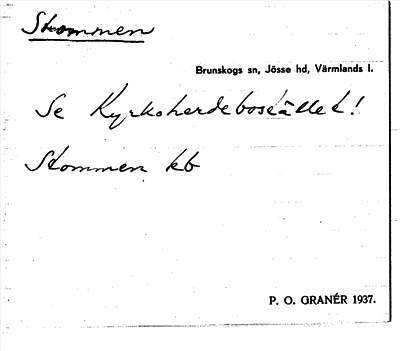 Stommen
Brunskogs sn, Jösse hd, Värmlands l.
Se Kyrkoherdebostället!
Stommen kb
P. O. GRANÉR 1937.